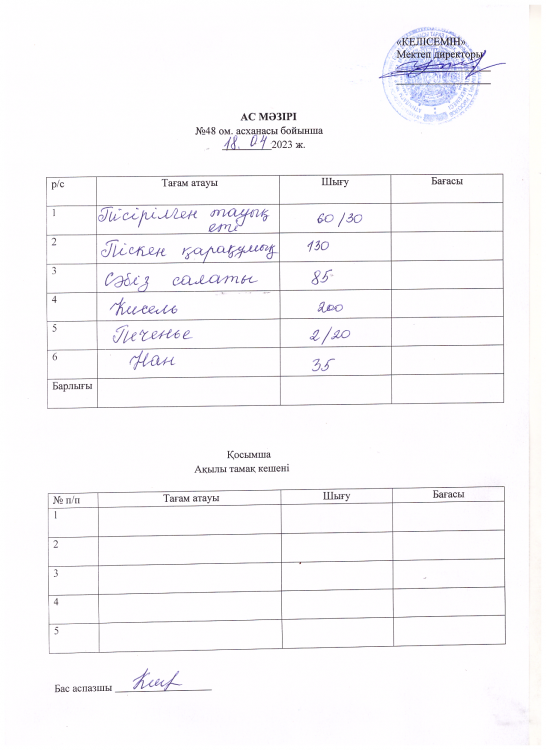 «КЕЛІСЕМІН»
Мектеп директоры
АС МӘЗІРІ
№48 ом. асханасы бойынша
18. 04 2023 ж.
р/с Тағам атауы Шығу Бағасы
1 Пісірілген тауық еті 60/30
2 Піскен қарақұмық 130
3 Сәбіз салаты 85
4 Кисель 200
5 Печенье 2/20
6 Нан 35
Барлығы
Қосымша
Ақылы тамақ кешені
№ п/п Тағам атауы Шығу Бағасы
1
2
3
4
5
Бас аспазшы